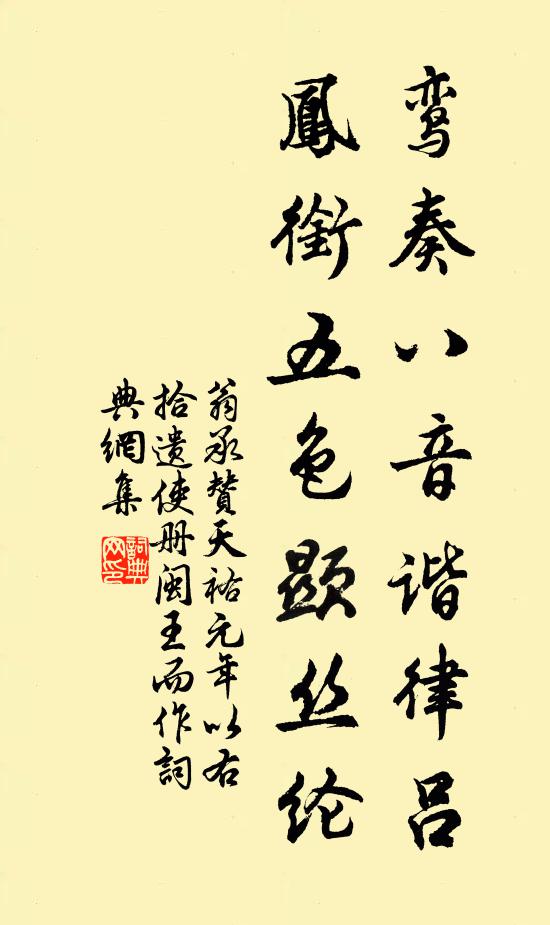 鸾奏八音谐律吕
鳳銜五色顯丝纶
翁承贊天祐元年以右
拾遺使册闽王而作詞
典網集
詞典网印